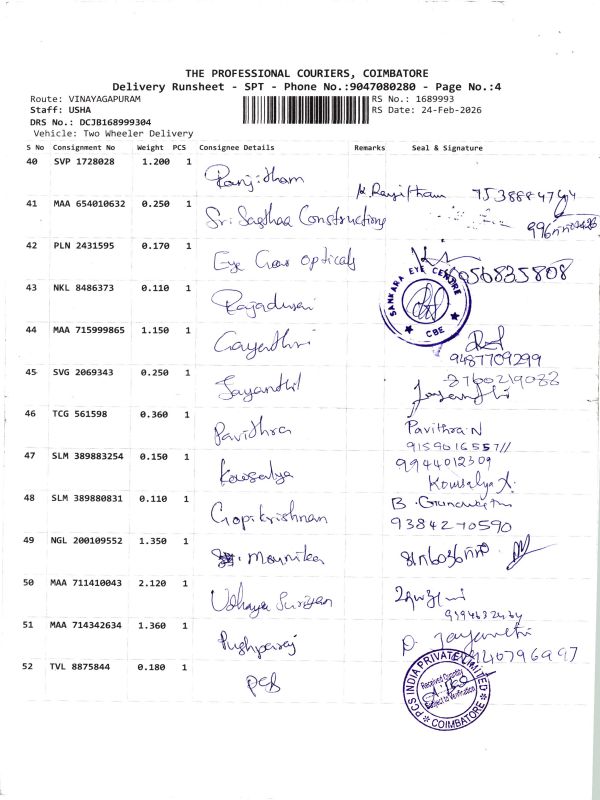 THE PROFESSIONAL COURIERS, COIMBATORE
Delivery Runsheet - SPT - Phone No.:9047080280 - Page No.:4
Route: VINAYAGAPURAM RS No.: 1689993
Staff: USHA RS Date: 24-Feb-2026
DRS No.: DCJB168999304
Vehicle: Two Wheeler Delivery
S No Consignment No Weight PCS Consignee Details Remarks Seal & Signature
40 SVP 1728028 1.200 1 Ranjitham
41 MAA 654010632 0.250 1 Sri Sasthaa Constructions
42 PLN 2431595 0.170 1 Eye Care opticals
SANKARA EYE CENTRE
CBE
43 NKL 8486373 0.110 1 Rajadurai
44 MAA 715999865 1.150 1 Gayathri
9487709299
45 SVG 2069343 0.250 1 Jayanthi
8760219083
46 TCG 561598 0.360 1 Pavithra Pavithra N
9159016557
47 SLM 389883254 0.150 1 Kowsalya 9944012309
Kowsalya
48 SLM 389880831 0.110 1 Gopikrishnan B.
9384270590
49 NGL 200109552 1.350 1 Mounika
50 MAA 711410043 2.120 1 Udhaya Suriyan
51 MAA 714342634 1.360 1 Pushparaj P. Jayanthi
52 TVL 8875844 0.180 1 PCB
PCS INDIA PRIVATE LIMITED
Received Quantity
Subject to Verification
COIMBATORE